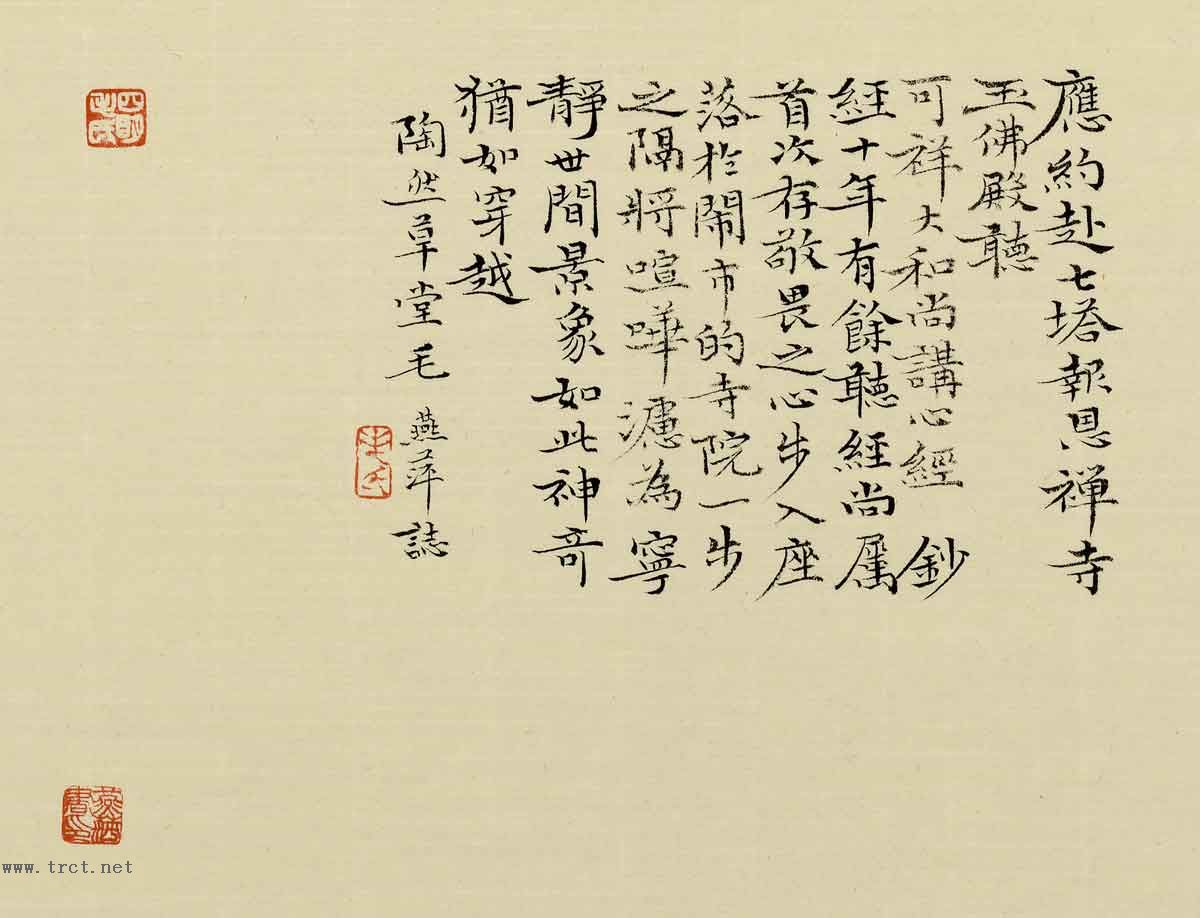 應約赴七塔報恩禅寺
玉佛殿聽
可祥大和尚講心經 鈔
経十年有餘聽経尚属
首次存敬畏之心步入座
落於鬧市的寺院一步
之隔將喧嘩濾為寧
靜世間景象如此神奇
猶如穿越
陶然草堂毛燕萍誌
www.trct.net